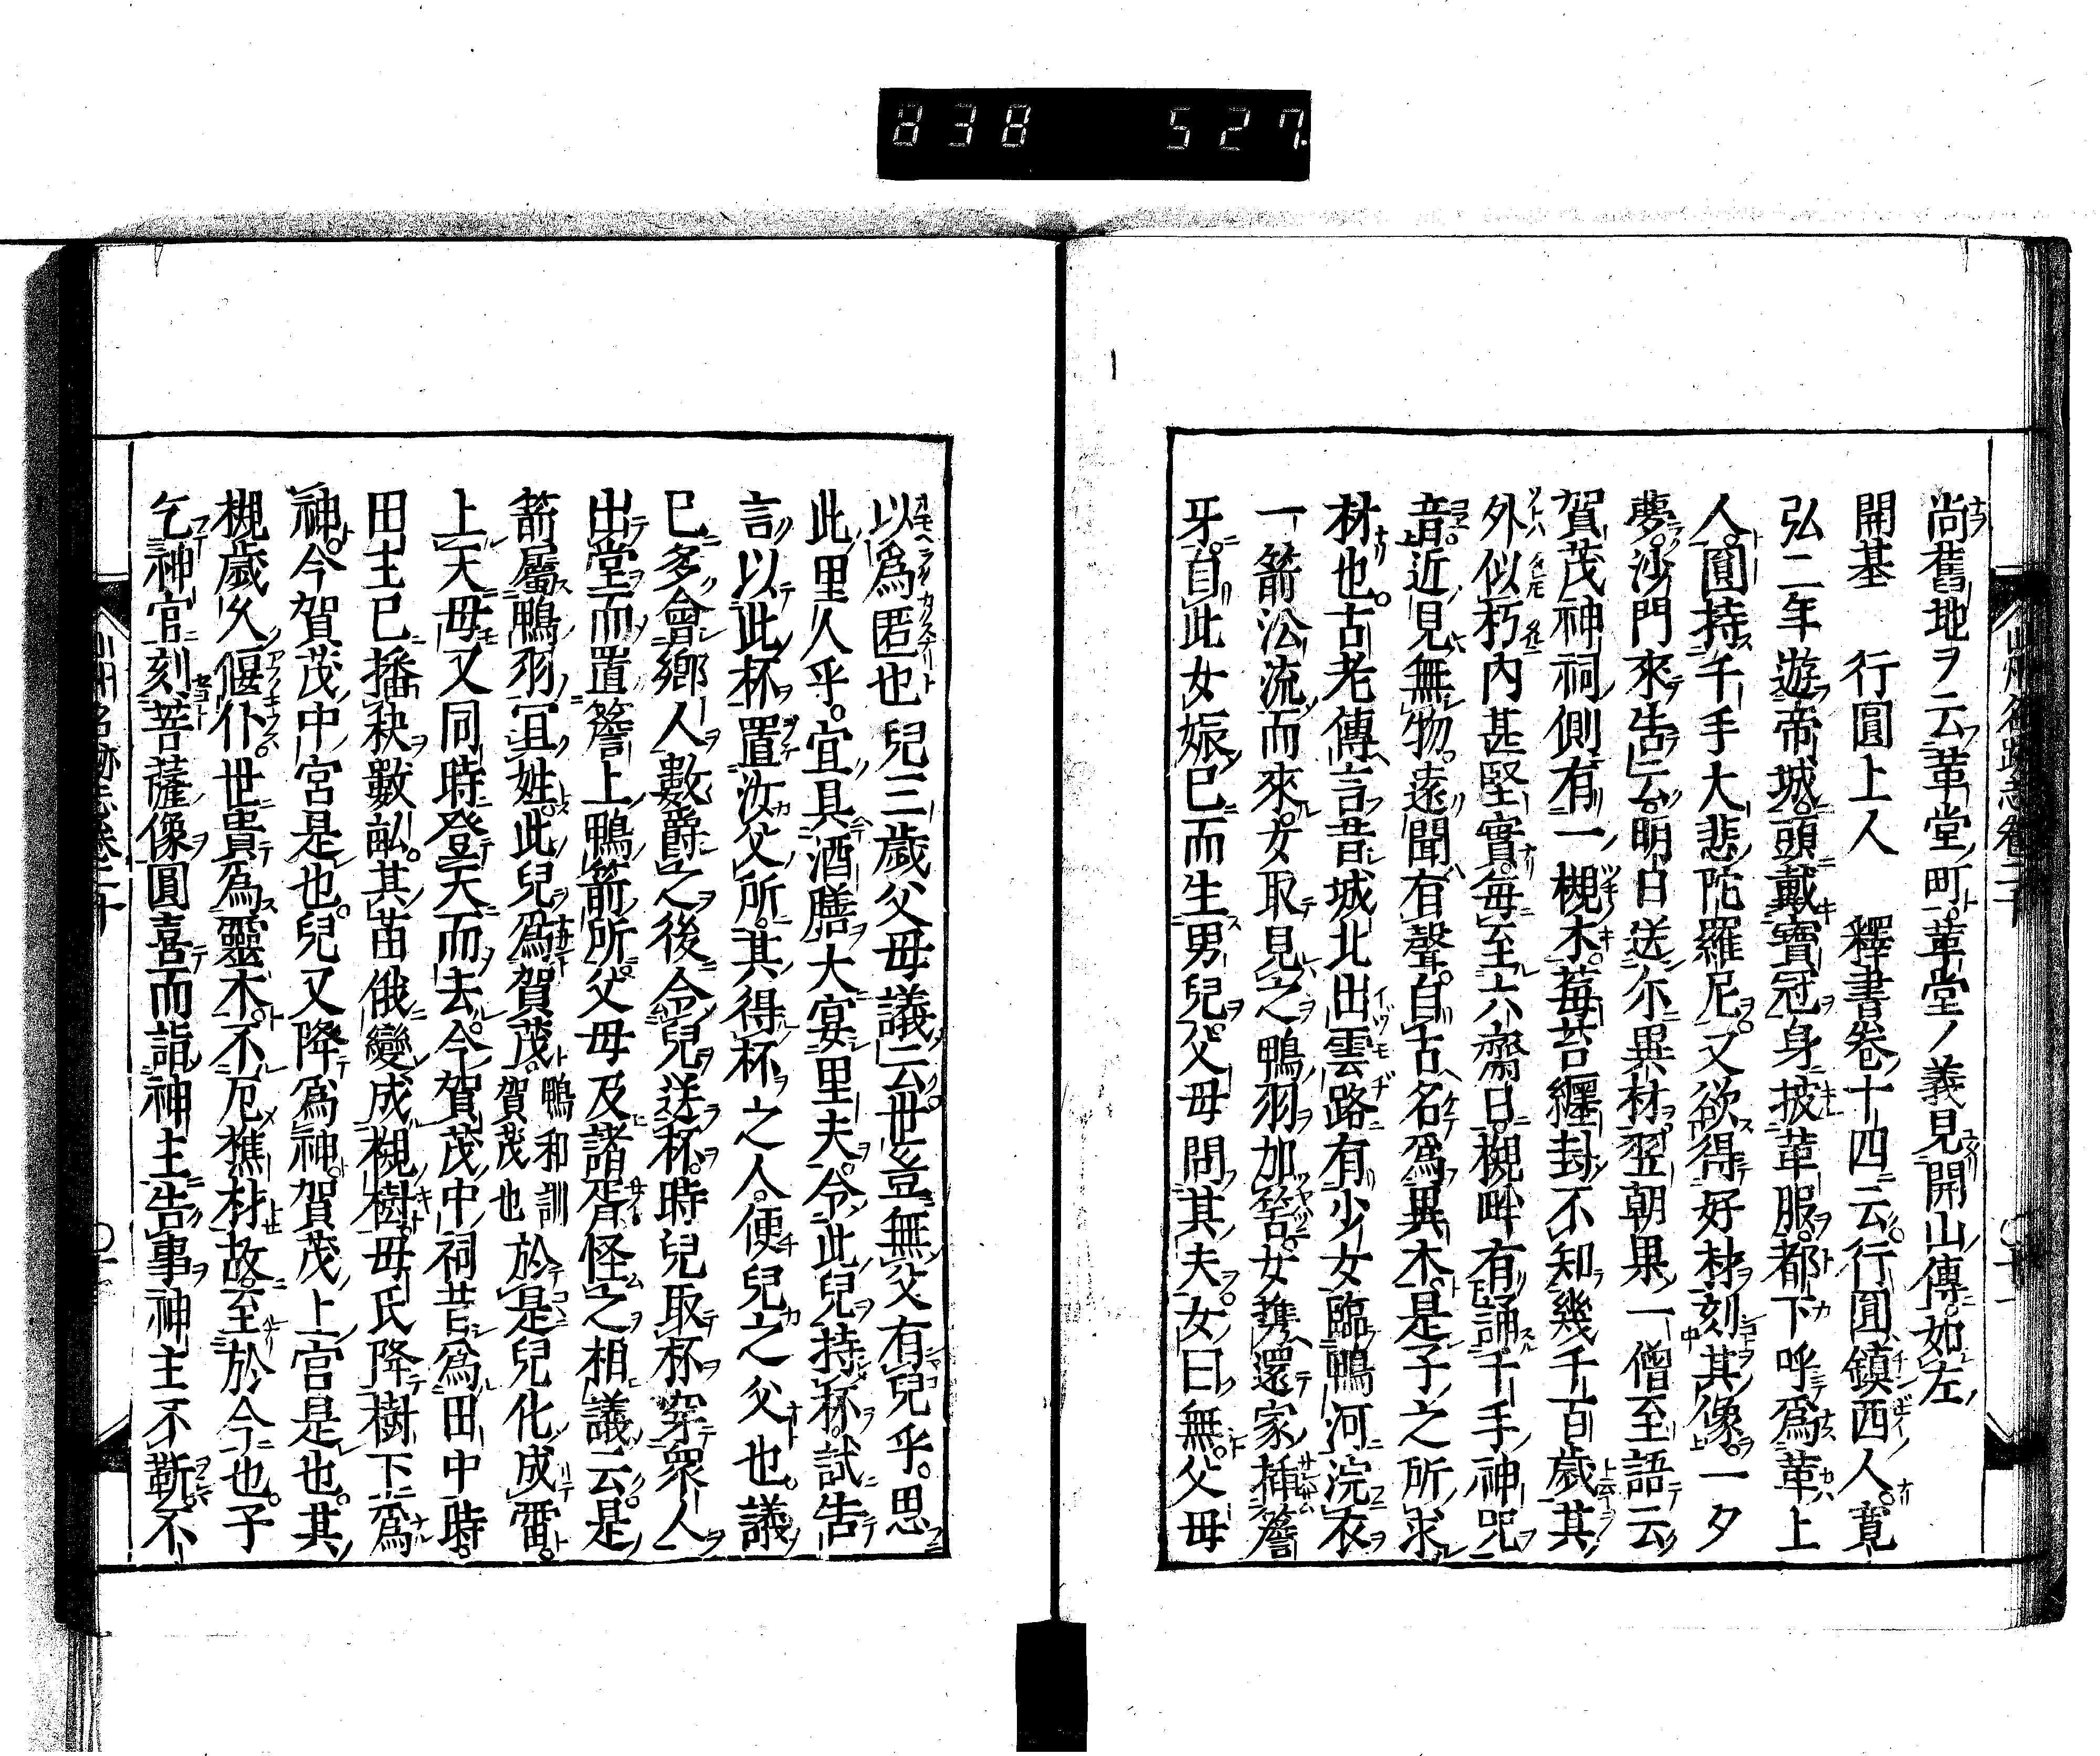 838 527.
尚舊地ヲ云革堂町ト革堂ノ義見開山傳如左
開基 行圓上人 釋書卷十四云行圓鎮西人寛
弘二年遊帝城頭戴寶冠身披革服都下呼爲革上
人圓持千手大悲陀羅尼又欲得好材刻其像一夕
夢沙門來告云明日送尓異材翌朝果一僧至語云
賀茂神祠側有一槻木莓苔纒封不知幾千百歳其
外似朽内甚堅實毎至六齋日槻畔有誦千手神咒
音近見無物遠聞有聲自古名爲異木是子之所求
材也古老傳言昔城北出雲路有少女臨鴨河浣衣
一箭㳂流而來女取見之鴨羽加筈女携還家插簷
牙自此女娠已而生男兒父母問其夫女曰無父母
以爲匿也兒三歳父母議云世豈無父有兒乎思
此里人乎宜具酒膳大宴里夫令此兒持杯試告
言以此杯置汝父所其得杯之人便兒之父也議
已多會鄉人數爵之後令兒送杯時兒取杯穿衆人
出堂而置簷上鴨箭所父母及諸胥怪之相議云是
箭屬鴨羽冝姓此兒爲賀茂鴨和訓賀茂也於是兒化成雷
上天母又同時登天而去今賀茂中祠昔爲田中時
田主已播秧數畝其苗俄變成槻樹母氏降樹下爲
神今賀茂中宮是也兒又降爲神賀茂上宮是也其
槻歳久偃仆世貴爲靈木不厄樵材故至於今也子
乞神官刻菩薩像圓喜而詣神主告事神主不靳不